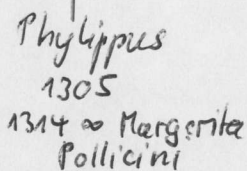 Phylippus
1305
1314 ∞ Margerita
Pollicini